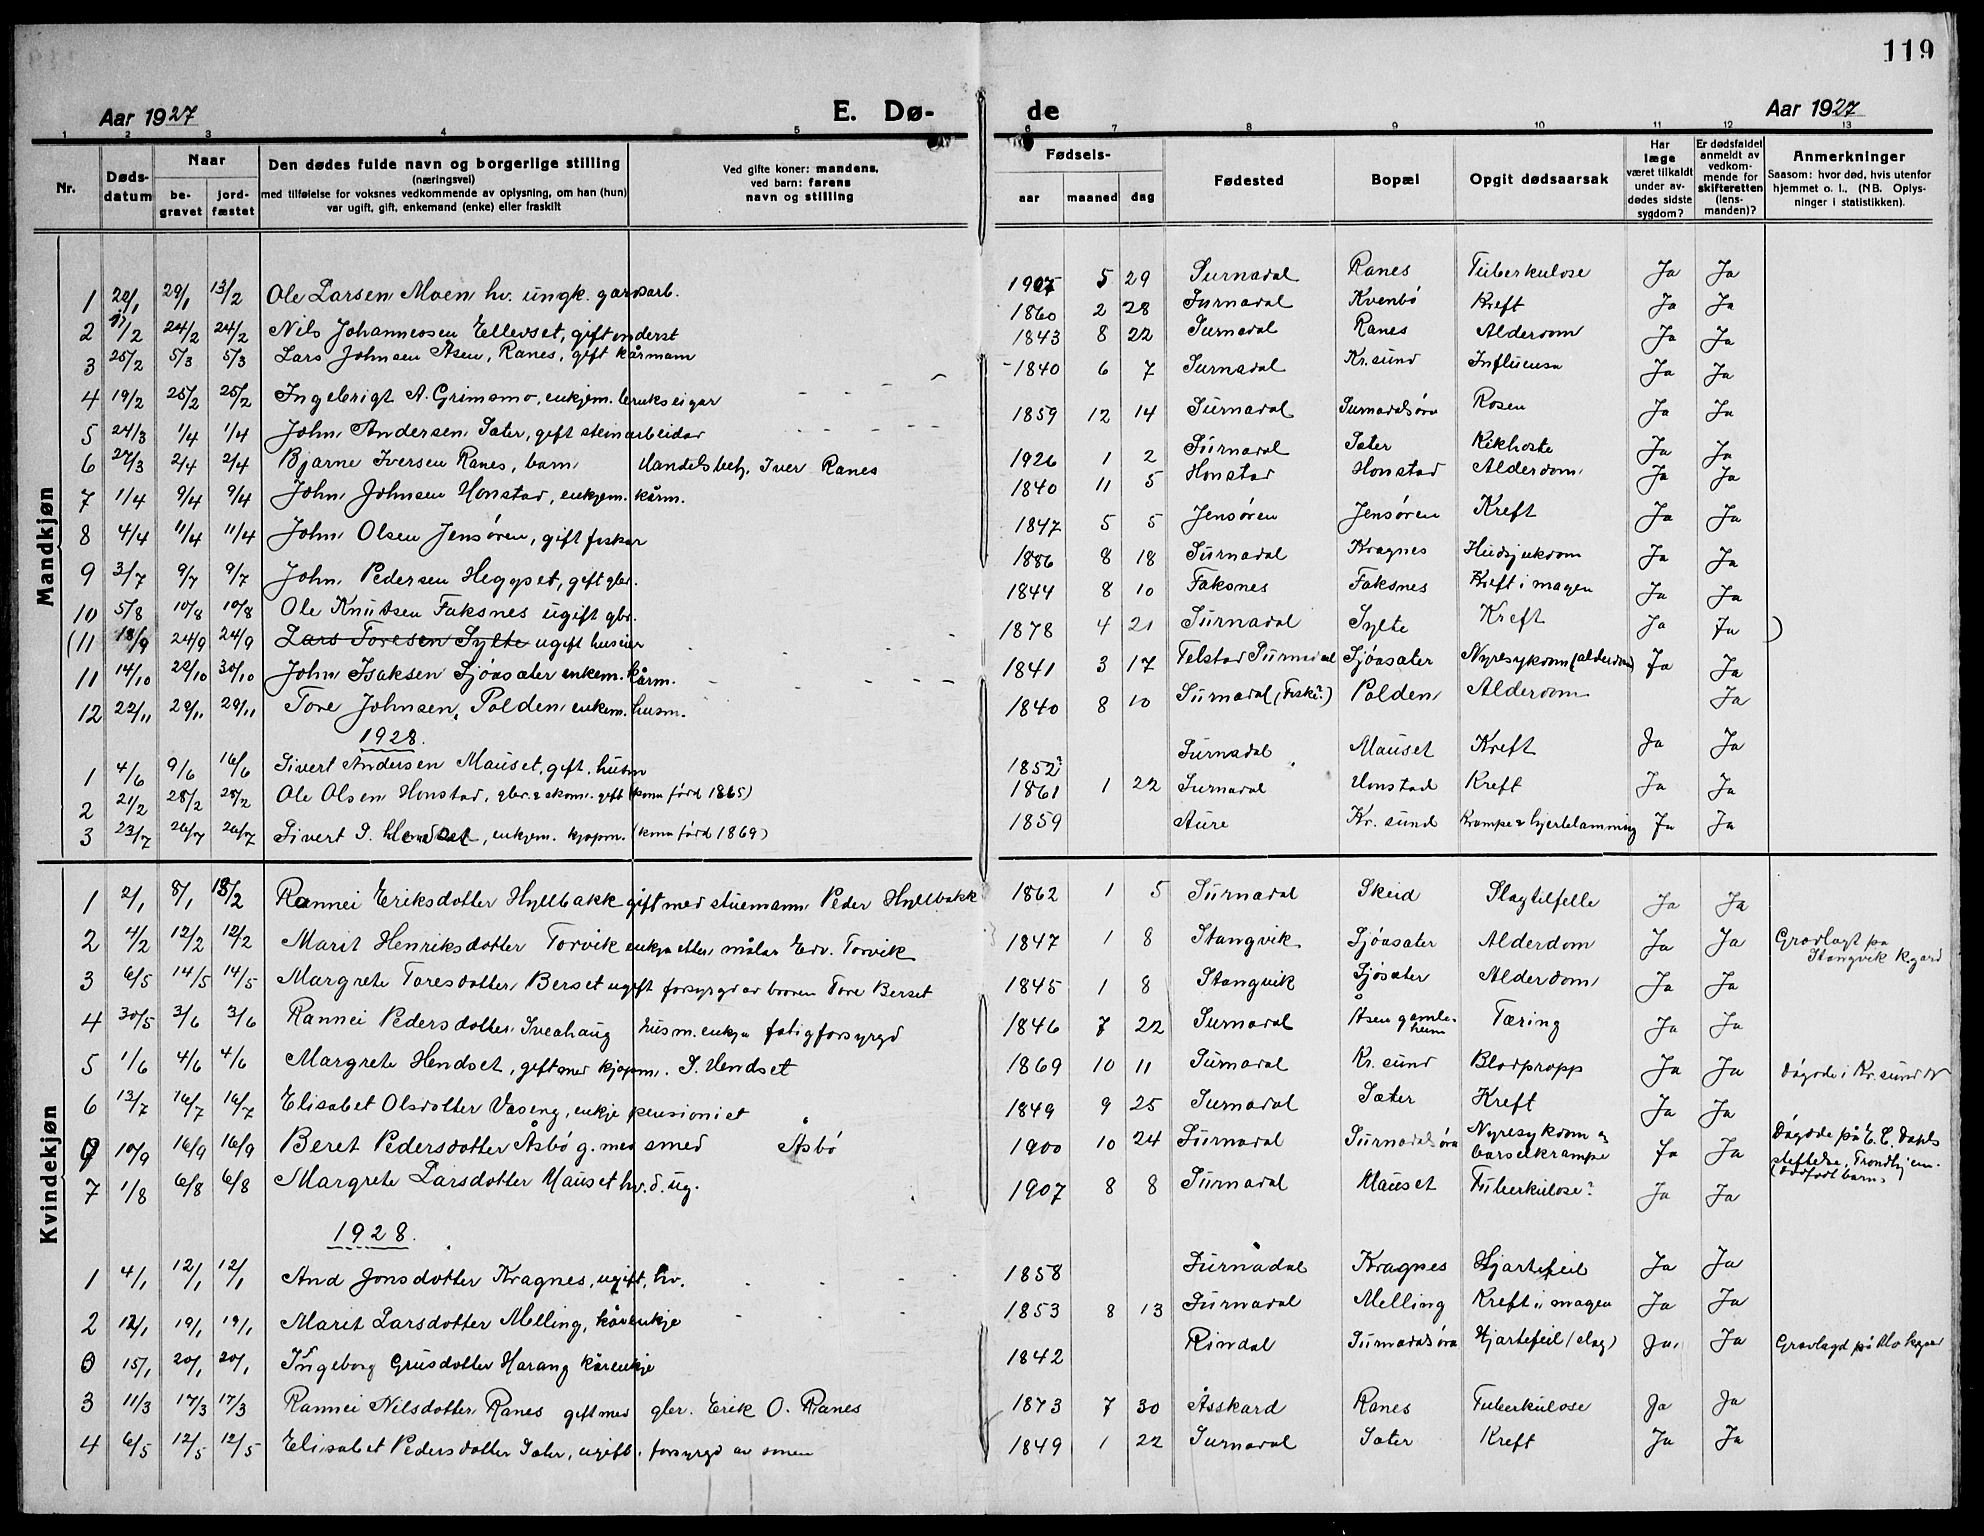 119
Aar 1927 E. Dø- de Aar 1927
1 2 3 4 5 6 7 8 9 10 11 12 13
Nr. Dødsdatum Naar begravet jordfæstet Den dødes fulde navn og borgerlige stilling (næringsvei) med tilføielse for voksnes vedkommende av oplysning, om han (hun) var ugift, gift, enkemand (enke) eller fraskilt Ved gifte koner: mandens, ved barn: farens navn og stilling Fødsels- aar maaned dag Fødested Bopæl Opgit dødsaarsak Har læge været tilkaldt under avdødes sidste sygdom? Er dødsfaldet anmeldt av vedkommende for skifteretten (lensmanden)? Anmerkninger Saasom: hvor død, hvis utenfor hjemmet o. l., (NB. Oplysninger i statistikken).
Mandkjøn
1 22/1 29/1 13/2 Ole Larsen Moen hv. ungk. gardsarb. 1905 5 29 Surnadal Ranes Tuberkulose Ja Ja
2 17/2 24/2 24/2 Nils Johannessen Ellevset, gift onderst 1860 2 28 Surnadal Kvenbø Kreft Ja Ja
3 25/2 5/3 5/3 Lars Johnsen Åsen, Ranes, gift kårmann 1843 8 22 Surnadal Ranes Alderdom Ja Ja
4 19/2 25/2 25/2 Ingebrigt A. Grimsmo, enkjem. brukseigar 1840 6 7 Surnadal Kr.sund Influensa Ja Ja
5 24/3 1/4 1/4 John Andersen Sæter, gift steinarbeidar 1859 12 14 Surnadal Surnadalsøra Rosen Ja Ja
6 27/3 2/4 2/4 Bjarne Iversen Ranes, barn Handelsbetj. Iver Ranes 1926 1 2 Surnadal Sæter Kikhoste Ja Ja
7 1/4 9/4 9/4 John Johnsen Honstad, enkjem. kårm. 1840 11 5 Honstad Honstad Alderdom Ja Ja
8 4/4 11/4 11/4 John Olsen Jensøren, gift fiskar 1847 5 5 Jensøren Jensøren Kreft Ja Ja
9 3/7 9/7 9/7 John Pedersen Heggset, gift gbr. 1886 8 18 Surnadal Kragnes Hudsjukdom Ja Ja
10 5/8 10/8 10/8 Ole Knutsen Faksnes ugift gbr. 1844 8 10 Faksnes Faksnes Kreft i magen Ja Ja
(11 18/9 24/9 24/9 Lars Toresen Sylte ugift huseier 1878 4 21 Surnadal Sylte Kreft Ja Ja )
11 14/10 22/10 30/10 John Isaksen Sjøasæter enkem. kårm. 1841 3 17 Telstad Surnadal Sjøasæter Nyresykdom (alderdom) Ja Ja
12 22/11 29/11 29/11 Tore Johnsen, Polden enkem. husm. 1840 8 10 Surnadal (Fiske?) Polden Alderdom Ja
1928.
1 4/6 9/6 16/6 Sivert Andersen Mauset, gift, husm 1852? Surnadal Mauset Kreft Ja Ja
2 21/2 28/2 28/2 Ole Olsen Honstad, gbr. & skom. gift (kona født 1865) 1861 1 22 Surnadal Honstad Kreft Ja Ja
3 23/7 26/7 26/7 Sivert I. Hendset, enkjem. kjøpm. (kona født 1869) 1859 Aure Kr. sund Krampe & hjertelamming Ja Ja
Kvindekjøn
1 2/1 8/1 13/2 Rannei Eriksdotter Hyllbakk gift med stuemann Peder Hyllbakk 1862 1 5 Surnadal Skeid Slagtilfelle Ja Ja
2 4/2 12/2 12/2 Marit Henriksdotter Torvik enkja etter målar Edv. Torvik 1847 1 8 Stangvik Sjøasæter Alderdom Ja Ja Gravlagt på Stangvik k.gard
3 6/5 14/5 14/5 Margrete Toresdotter Berset ugift forsyrgd av broren Tore Berset 1845 1 8 Stangvik Sjøsæter Alderdom Ja Ja
4 30/5 3/6 3/6 Rannei Pedersdotter Sveahaug husm. enkja fatigforsyrgd 1846 7 22 Surnadal Åsen gamleheim Tæring Ja Ja
5 1/6 4/6 4/6 Margrete Hendset, gift med kjøpm. S. Hendset 1869 10 11 Surnadal Kr. sund Blodpropp Ja Ja Døgde i Kr.sund N
6 13/7 16/7 16/7 Elisabet Olsdotter Vaseng, enkje pensionist 1849 9 25 Surnadal Sæter Kreft Ja Ja
10/9 16/9 16/9 Beret Pedersdotter Åsbø g. med smed Åsbø 1900 10 24 Surnadal Surnadalsøra Nyresykdom & barselkrampe Ja Ja Døgde på E. C. Dahls stiftelse, Trondhjem. (Dødfødt barn)
7 1/8 6/8 6/8 Margrete Larsdotter Mauset hv. d. ug. 1907 8 8 Surnadal Mauset Tuberkulose? Ja Ja
1928.
1 4/1 12/1 12/1 And Jonsdotter Kragnes, ugift, hv. 1858 Surnadal Kragnes Hjartefeil Ja Ja
2 12/1 19/1 19/1 Marit Larsdotter Melling, kårenkje 1853 8 13 Surnadal Melling Kreft i magen Ja Ja
0 15/1 20/1 20/1 Ingeborg Grusdotter Harang kårenkje 1842 Rindal Surnadalsøra Hjartefeil (slag) Ja Ja Gravlagd på Mo kgard
3 11/3 17/3 17/3 Rannei Nilsdotter Ranes gift med gbr. Erik O. Ranes 1873 7 30 Åsskard Ranes Tuberkulose Ja Ja
4 6/5 12/5 12/5 Elisabet Pedersdotter Sæter, ugift. forsyrgd av sonen 1849 1 22 Surnadal Sæter Kreft Ja Ja